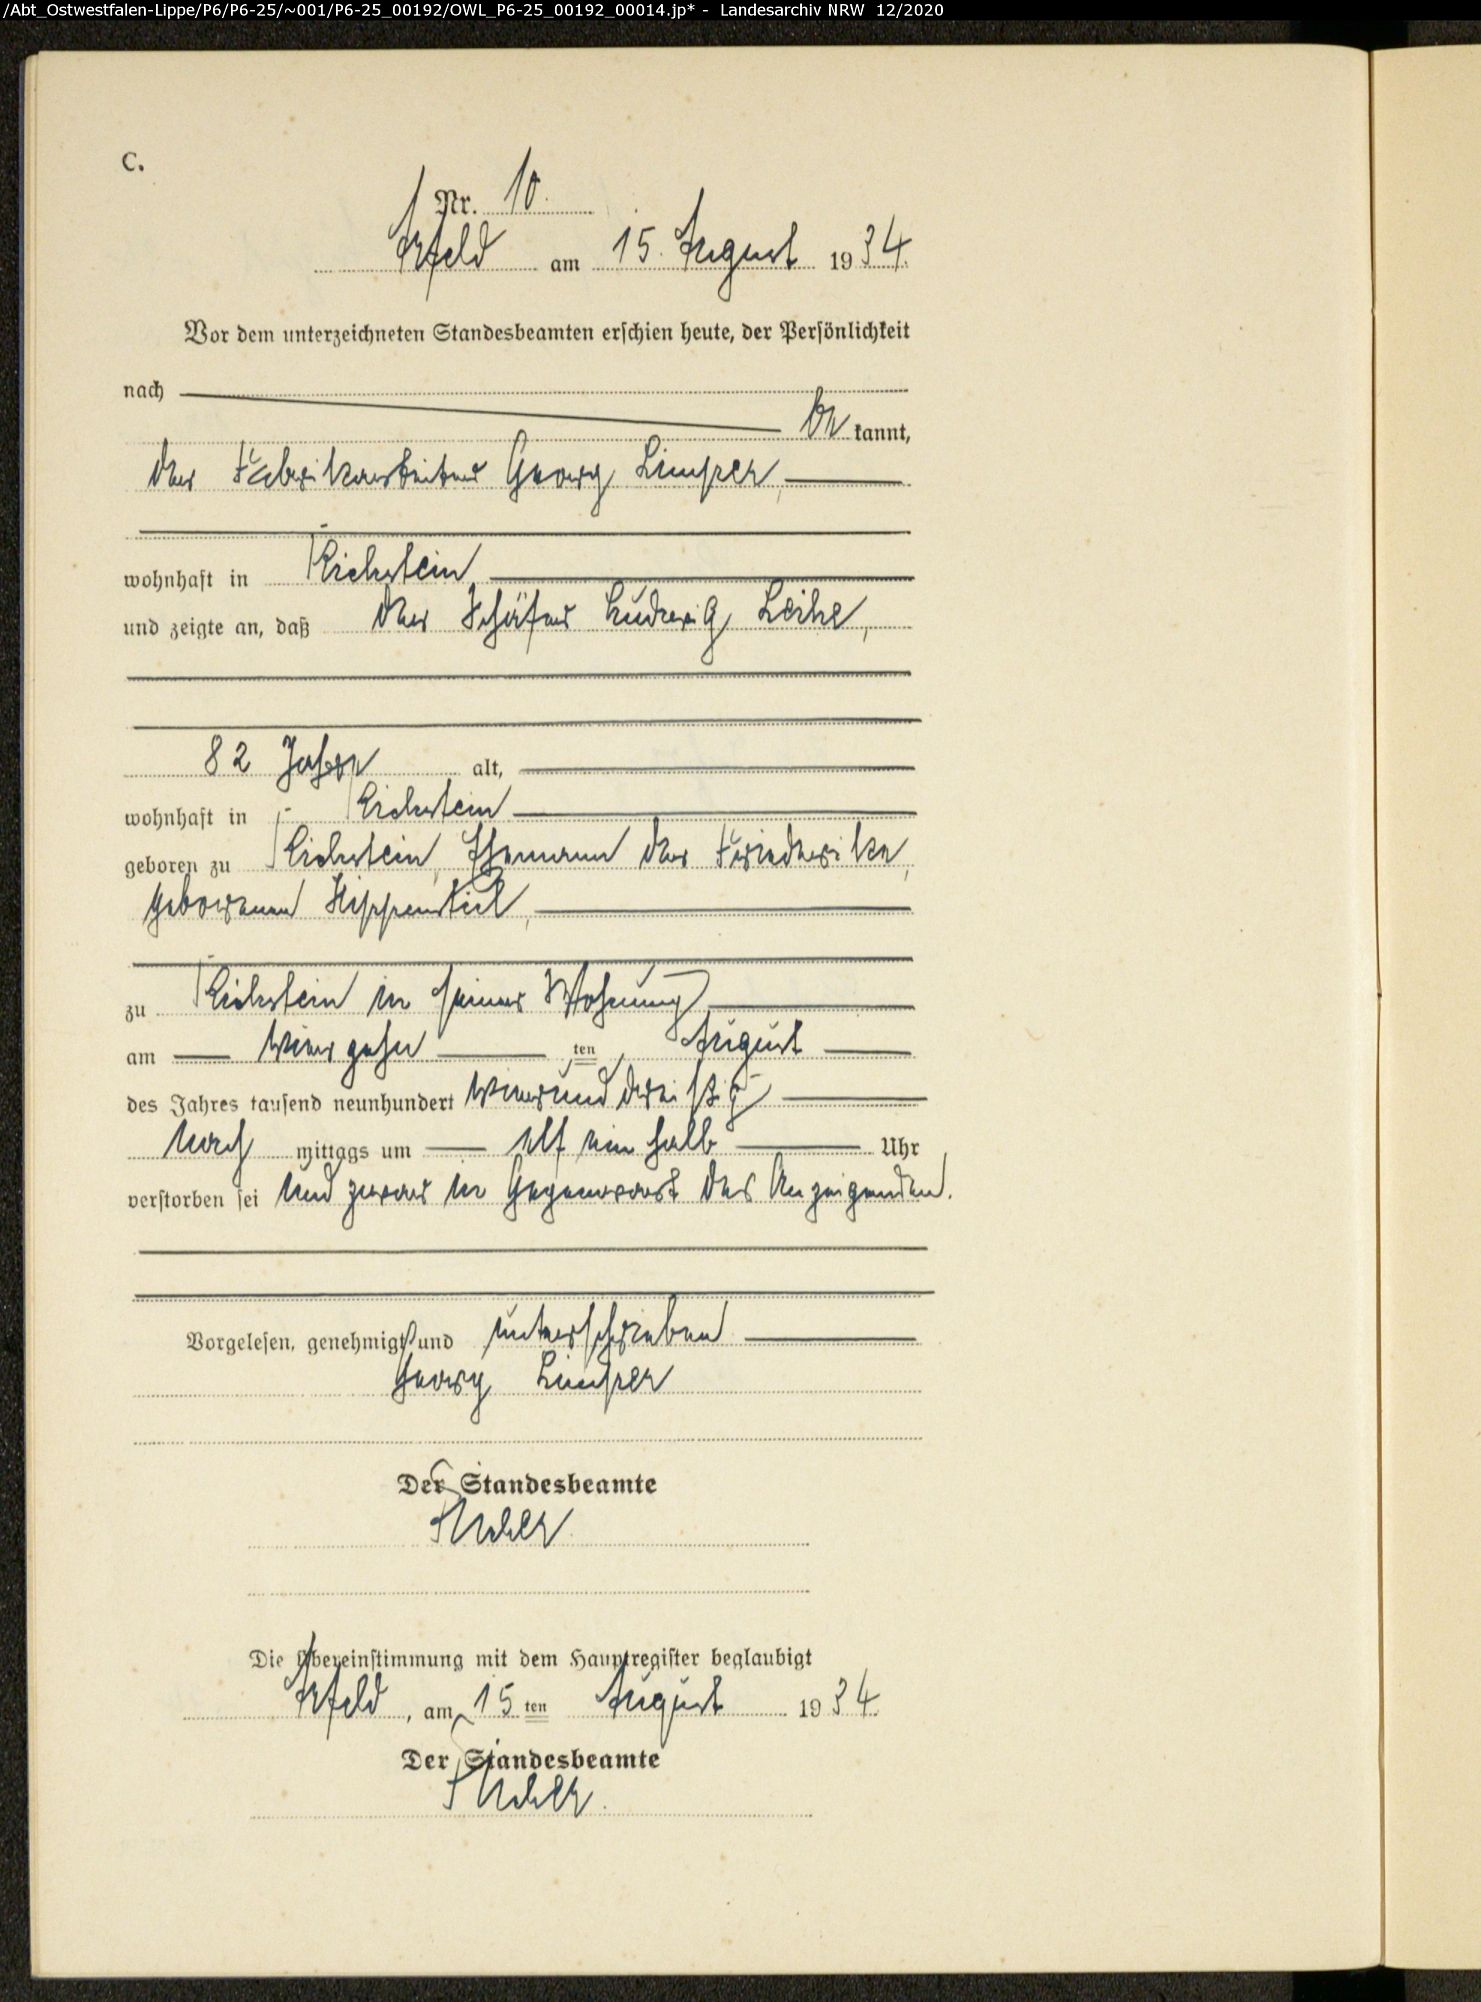 /Abt_Ostwestfalen-Lippe/P6/P6-25/~001/P6-25_00192/OWL_P6-25_00192_00014.jp* - Landesarchiv NRW 12/2020
C.
Nr. 10.
Arfeld am 15. August 1934.
Vor dem unterzeichneten Standesbeamten erschien heute, der Persönlichkeit
nach
be kannt,
der Fabrikarbeiter Georg Limper,
wohnhaft in Richstein
und zeigte an, daß der Schäfer Ludwig
82 Jahre alt,
wohnhaft in Richstein
geboren zu Richstein, Ehemann der Friederike,
geborenen Hippenstiel,
zu Richstein in seiner Wohnung
am vierzehn ten August
des Jahres tausend neunhundert vierunddreißig
nach mittags um elf ein halb Uhr
verstorben sei und zwar in Gegenwart des Anzeigenden.
Vorgelesen, genehmigt und unterschrieben
Georg Limper
Der Standesbeamte
Die Übereinstimmung mit dem Hauptregister beglaubigt
Arfeld, am 15 ten August 1934.
Der Standesbeamte